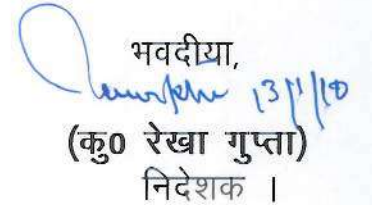 भवदीया,
13/1/10
(कु0 रेखा गुप्ता)
निदेशक ।